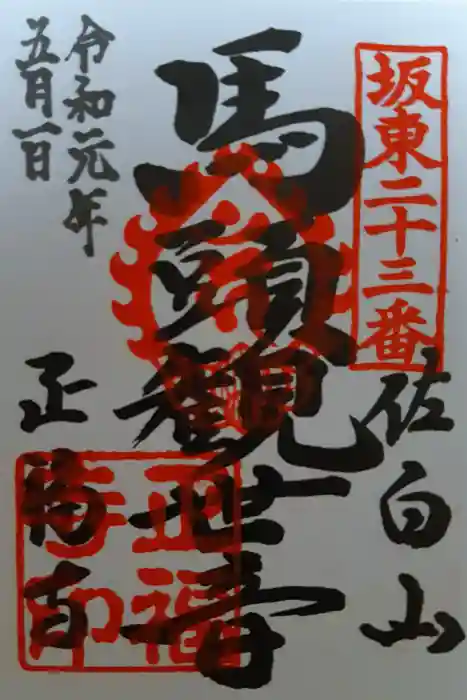 坂東二十三番
佐白山
馬頭觀世音
令和元年
五月一日
正福寺
正福寺印